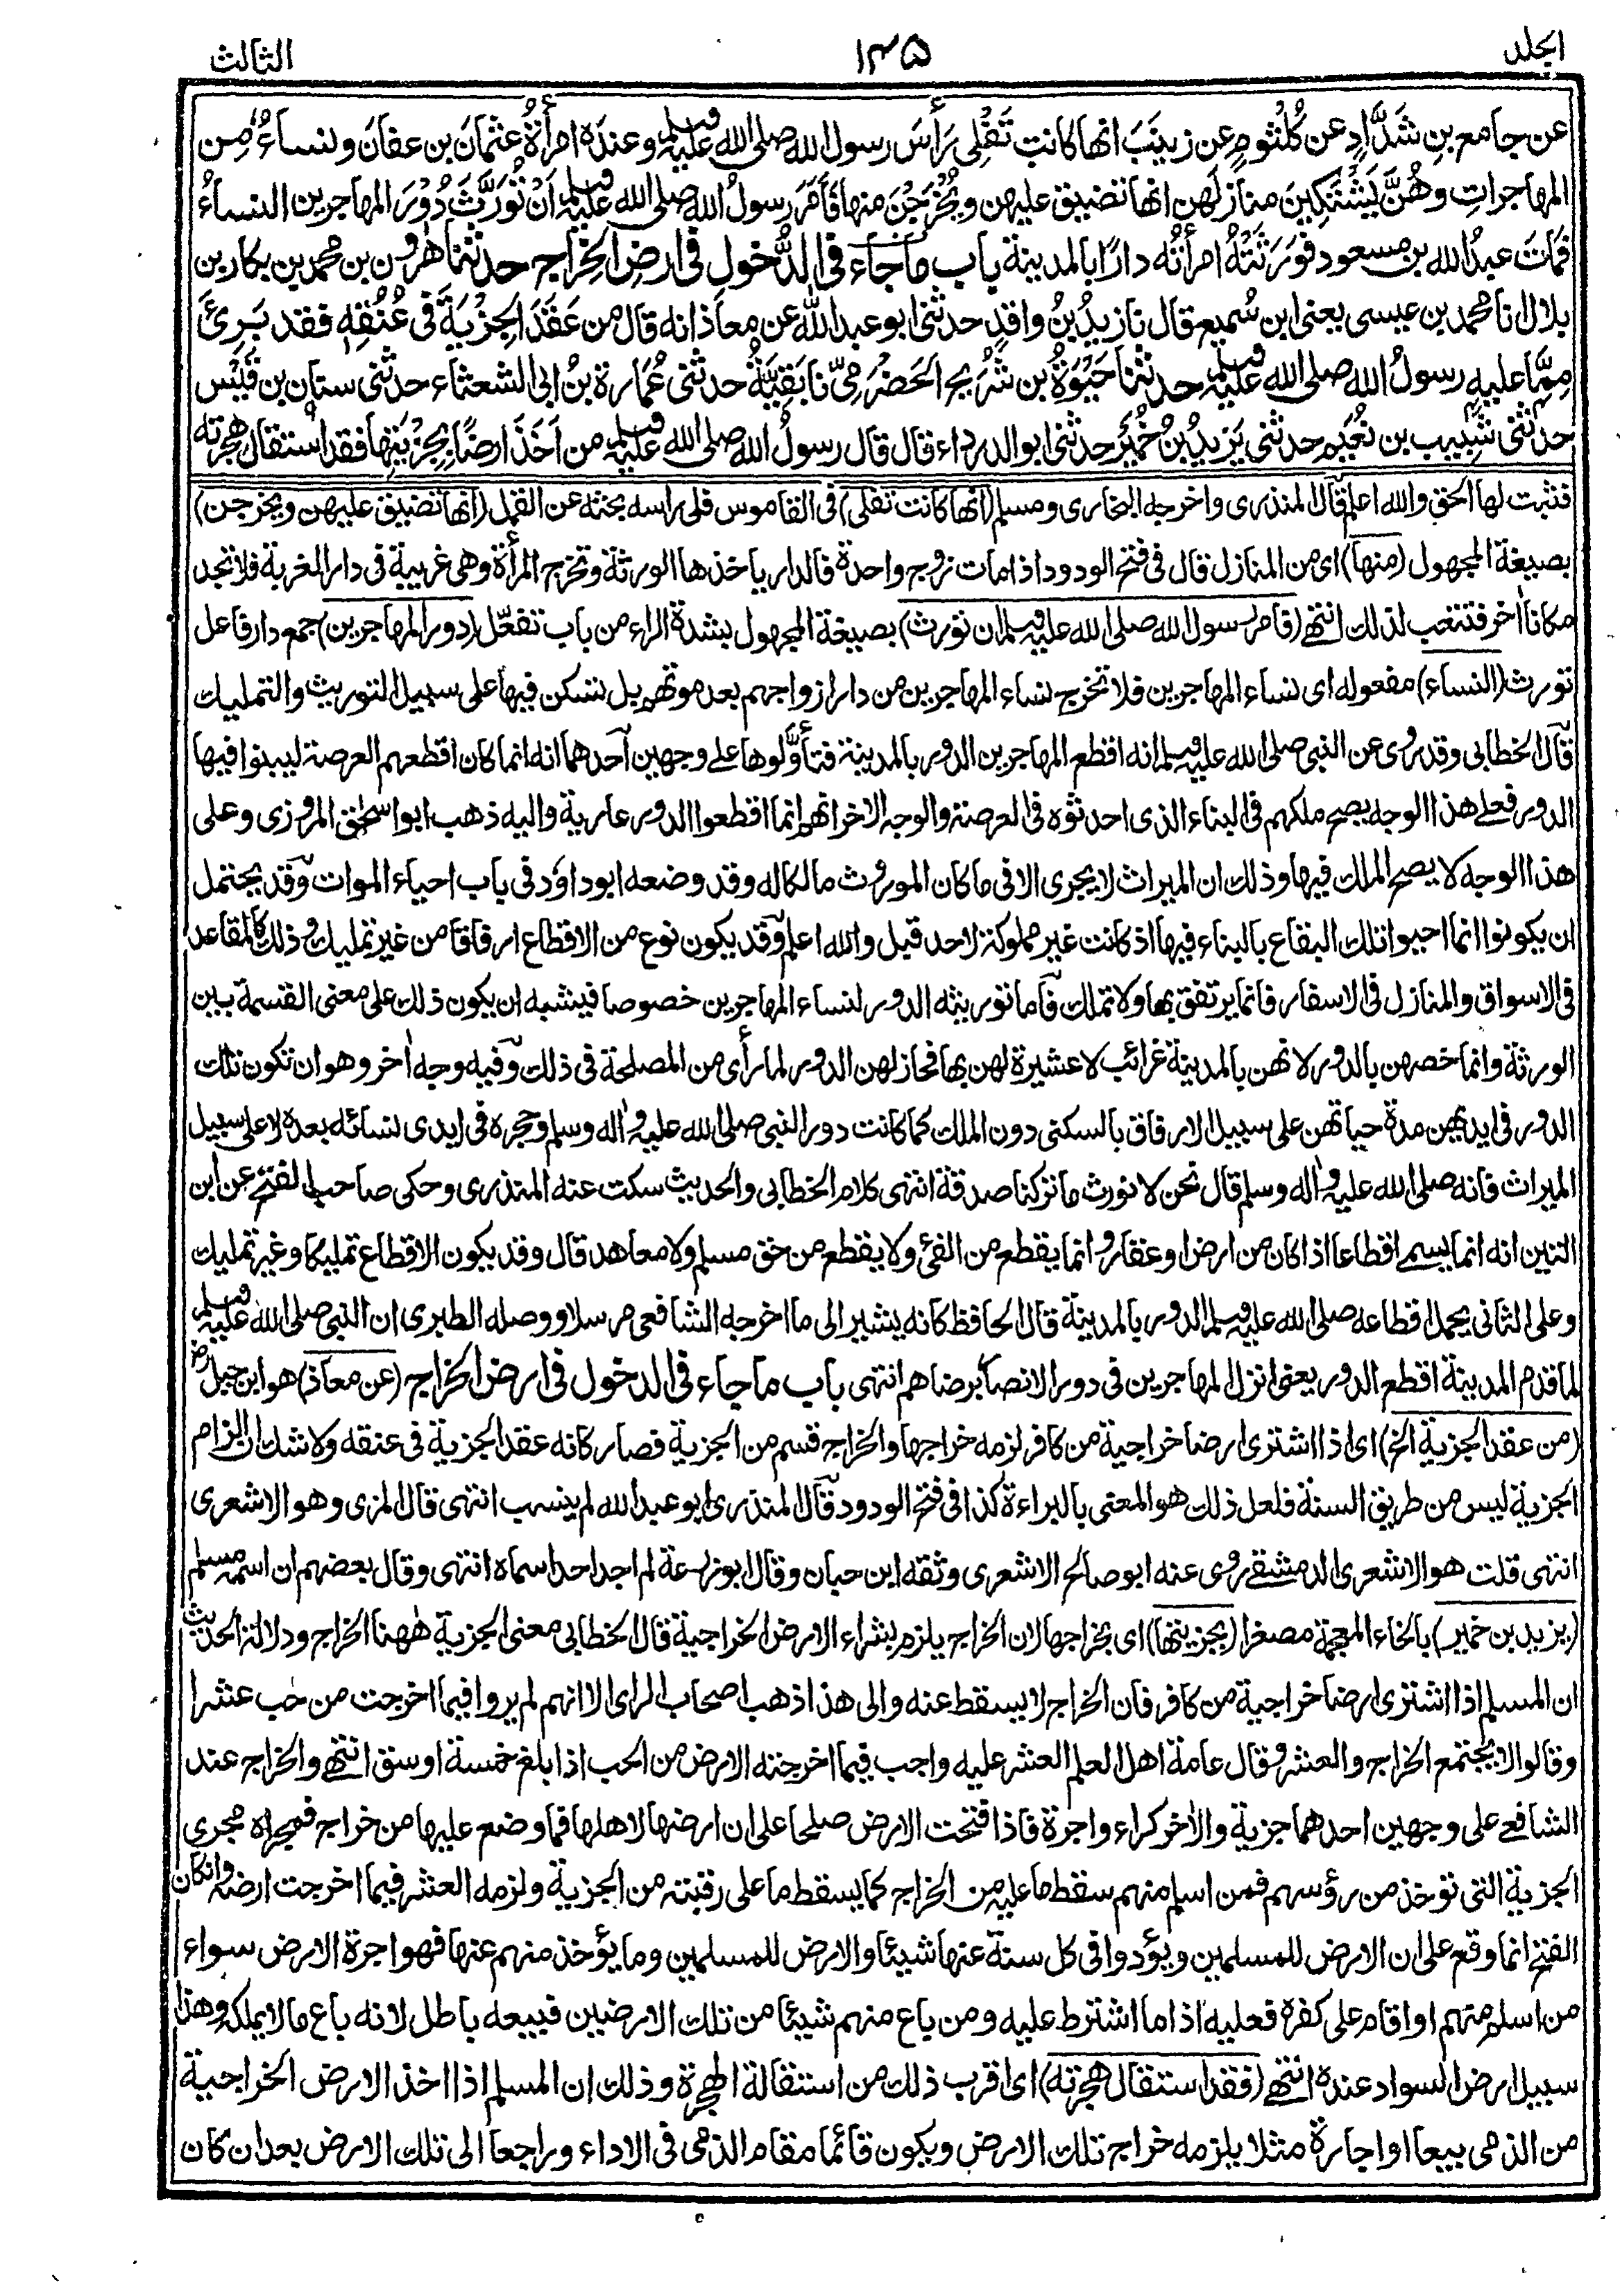 الجلد ١٣٥ الثالث
عن جامع بنِ شَدَّادٍ عن كُلْثُومٍ عن زينَبَ انها كانت تَفْلِى رَأسَ رسول الله صلى الله عليه وسلم وعندَه امرأةُ عثمانَ بن عفانَ ونساءٌ من
المهاجراتِ وهُنَّ يَشْتَكِينَ منازلَهن انها تضيق عليهن ويُخْرَجْنَ منها فأَمَرَ رسولُ الله صلى الله عليه وسلم أنْ تُوَرَّثَ دُوْرَ المهاجرين النساءُ
فماتَ عبدُ الله بن مسعود فوَرِثَتْهُ امرأتُه دارًا بالمدينة باب ماجاء فى الدُّخولِ فى ارضِ الخِراج حدثنا هٰرون بن محمد بن بكار بن
بلال انا محمد بن عيسى يعنى ابن سُميع قال نا زيدُ بنُ واقدٍ حدثنى ابو عبد الله عن معاذ انه قال من عَقَدَ الجِزْيَةَ فى عُنُقِهٖ فقد بَرِئَ
مِمَّا عليه رسولُ الله صلى الله عليه وسلم حدثنا حَيْوَةُ بن شُرَيح الحَضْرَمِىّ نا بَقِيَّةُ حدثنى عُمَارة بنُ ابى الشعثاء حدثنى سنان بن قَيْس
حدثنى شَبِيب بن نُعَيم حدثنى يَزيدُ بنُ خُمَيْر حدثنى ابو الدرداء قال قال رسولُ الله صلى الله عليه وسلم من اَخَذَ ارضًا بِجِزْيَتِها فقد استقال هجرته
فثبت لها الحق والله اعلم قال المنذرى واخرجه البخارى ومسلم (انها كانت تفلى) فى القاموس فلى راسه بحثه عن القمل (انها تضيق عليهن ويخرجن)
بصيغة المجهول (منها) اى من المنازل قال فى فتح الودود اذا مات زوج واحدة فالدار ياخذها الورثة وتخرج المرأة وهى غريبة فى دار الغربة فلا تجد
مكانا اٰخر فتتعب لذلك انتهى (فامر رسول الله صلى الله عليه وسلم ان تورث) بصيغة المجهول بشدة الراء من باب تفعّل (دور المهاجرين) جمع دار فاعل
تورث (النساء) مفعوله اى نساء المهاجرين فلا تخرج نساء المهاجرين من دار ازواجهم بعد موتهم بل تسكن فيها على سبيل التوريث والتمليك
قال الخطابى وقد روى عن النبى صلى الله عليه وسلم انه اقطع المهاجرين الدور بالمدينة فتأوَّلوها على وجهين احدهما انه انما كان اقطعهم العرصة ليبنوا فيها
الدور فعلى هذا الوجه يصح ملكهم فى البناء الذى احدثوه فى العرصة والوجه الاخر انهم انما اقطعوا الدور عارية واليه ذهب ابو اسحٰق المروزى وعلى
هذا الوجه لا يصح الملك فيها وذلك ان الميراث لا يجرى الا فى ما كان الموروث مالكا له وقد وضعه ابو داوٗد فى باب احياء الموات وقد يحتمل
ان يكونوا انما احيوا تلك البقاع بالبناء فيها اذ كانت غير مملوكة لاحد قبل والله اعلم وقد يكون نوع من الاقطاع ارفاقا من غير تمليك وذلك كالمقاعد
فى الاسواق والمنازل فى الاسفار فانما يرتفق بها ولا تملك فاما توريثه الدور لنساء المهاجرين خصوصا فيشبه ان يكون ذلك على معنى القسمة بين
الورثة وانما خصهن بالدور لانهن بالمدينة غرائب لا عشيرة لهن بها فحاز لهن الدور لما رأى من المصلحة فى ذلك وفيه وجه اٰخر وهو ان تكون تلك
الدور فى ايديهن مدة حياتهن على سبيل الارفاق بالسكنى دون الملك كما كانت دور النبى صلى الله عليه واٰله وسلم وحجره فى ايدى نسائه بعده لا على سبيل
الميراث فانه صلى الله عليه واٰله وسلم قال نحن لا نورث ما تركنا صدقة انتهى كلام الخطابى والحديث سكت عنه المنذرى وحكى صاحب الفتح عن ابن
التين انه انما يسمى اقطاعا اذا كان من ارض او عقار وانما يقطع من الفئ ولا يقطع من حق مسلم ولا معاهد قال وقد يكون الاقطاع تمليكا وغير تمليك
وعلى الثانى يحمل اقطاعه صلى الله عليه وسلم الدور بالمدينة قال الحافظ كانه يشير الى ما اخرجه الشافعى مرسلا ووصله الطبرى ان النبى صلى الله عليه وسلم
لما قدم المدينة اقطع الدور يعنى انزل المهاجرين فى دور الانصار برضاهم انتهى باب ما جاء فى الدخول فى ارض الخراج (عن معاذ) هو ابن جبل رض
(من عقد الجزية الخ) اى اذا اشترى ارضا خراجية من كافر لزمه خراجها والخراج قسم من الجزية فصار كانه عقد الجزية فى عنقه ولا شك ان الزام
الجزية ليس من طريق السنة فلعل ذلك هو المعنى بالبراءة كذا فى فتح الودود قال المنذرى ابو عبد الله لم ينسب انتهى قال المزى وهو الاشعرى
انتهى قلت هو الاشعرى الدمشقى روى عنه ابو صالح الاشعرى وثقه ابن حبان وقال ابو زرعة لم اجد احدا سماه انتهى وقال بعضهم ان اسمه مسلم
(يزيد بن خمير) بالخاء المعجمة مصغرا (بجزيتها) اى بخراجها لان الخراج يلزم بشراء الارض الخراجية قال الخطابى معنى الجزية هٰهنا الخراج ودلالة الحديث
ان المسلم اذا اشترى ارضا خراجية من كافر فان الخراج لا يسقط عنه والى هذا ذهب اصحاب الراى الا انهم لم يروا فيما اخرجت من حب عشرا
وقالوا لا يجتمع الخراج والعشر وقال عامة اهل العلم العشر عليه واجب فيما اخرجته الارض من الحب اذا بلغ خمسة اوسق انتهى والخراج عند
الشافعى على وجهين احدهما جزية والاٰخر كراء واجرة فاذا فتحت الارض صلحا على ان ارضها لاهلها فما وضع عليها من خراج فمجراه مجرى
الجزية التى توخذ من رؤسهم فمن اسلم منهم سقط ما عليه من الخراج كما يسقط ما على رقبته من الجزية ولزمه العشر فيما اخرجت ارضه وان كان
الفتح انما وقع على ان الارض للمسلمين ويؤدوا فى كل سنة عنها شيئا والارض للمسلمين وما يؤخذ منهم عنها فهو اجرة الارض سواء
من اسلم منهم او اقام على كفره فعليه اذا ما اشترط عليه ومن باع منهم شيئا من تلك الارضين فبيعه باطل لانه باع ما لا يملكه وهذا
سبيل ارض السواد عنده انتهى (فقد استقال هجرته) اى اقرب ذلك من استقالة الهجرة وذلك ان المسلم اذا اخذ الارض الخراجية
من الذمى بيعا او اجارة مثلا يلزمه خراج تلك الارض ويكون قائما مقام الذمى فى الاداء وراجعا الى تلك الارض بعد ان كان